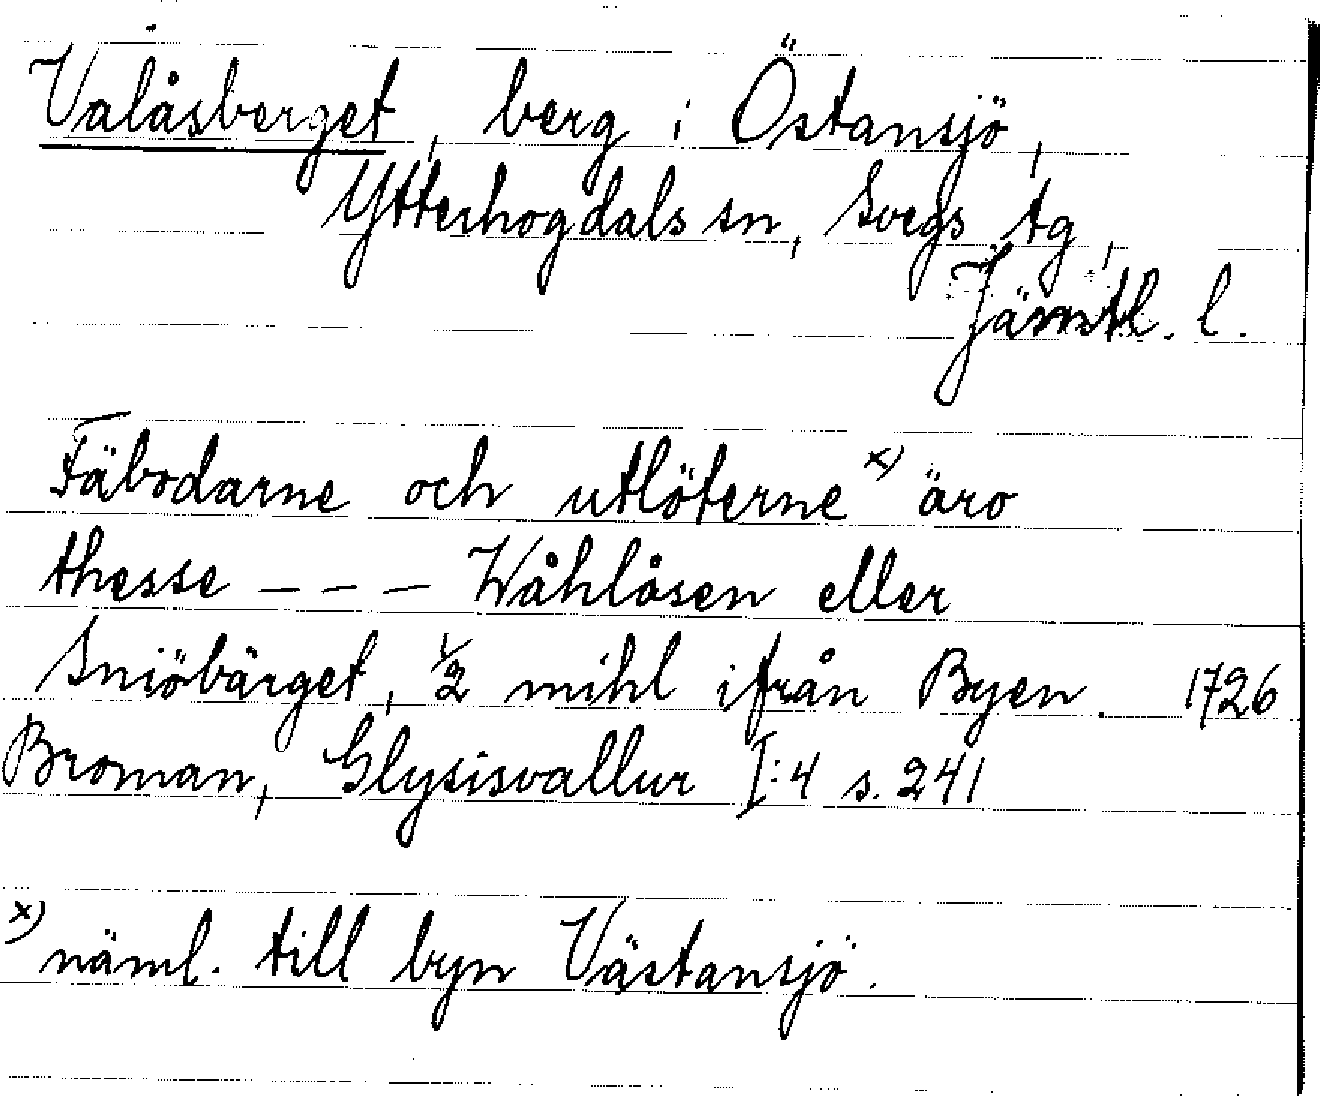 Valåsberget, berg i Östansjö,
Ytterhogdals sn, Svegs tg,
Jämtl. l.
Fäbodarne och utlöterne x) äro
thesse - - - Wåhlåsen eller
Sniöbärget, 1/2 mihl ifrån Byen. 1726
Broman, Glysisvallur I:4 s. 241
x) näml. till byn Västansjö.